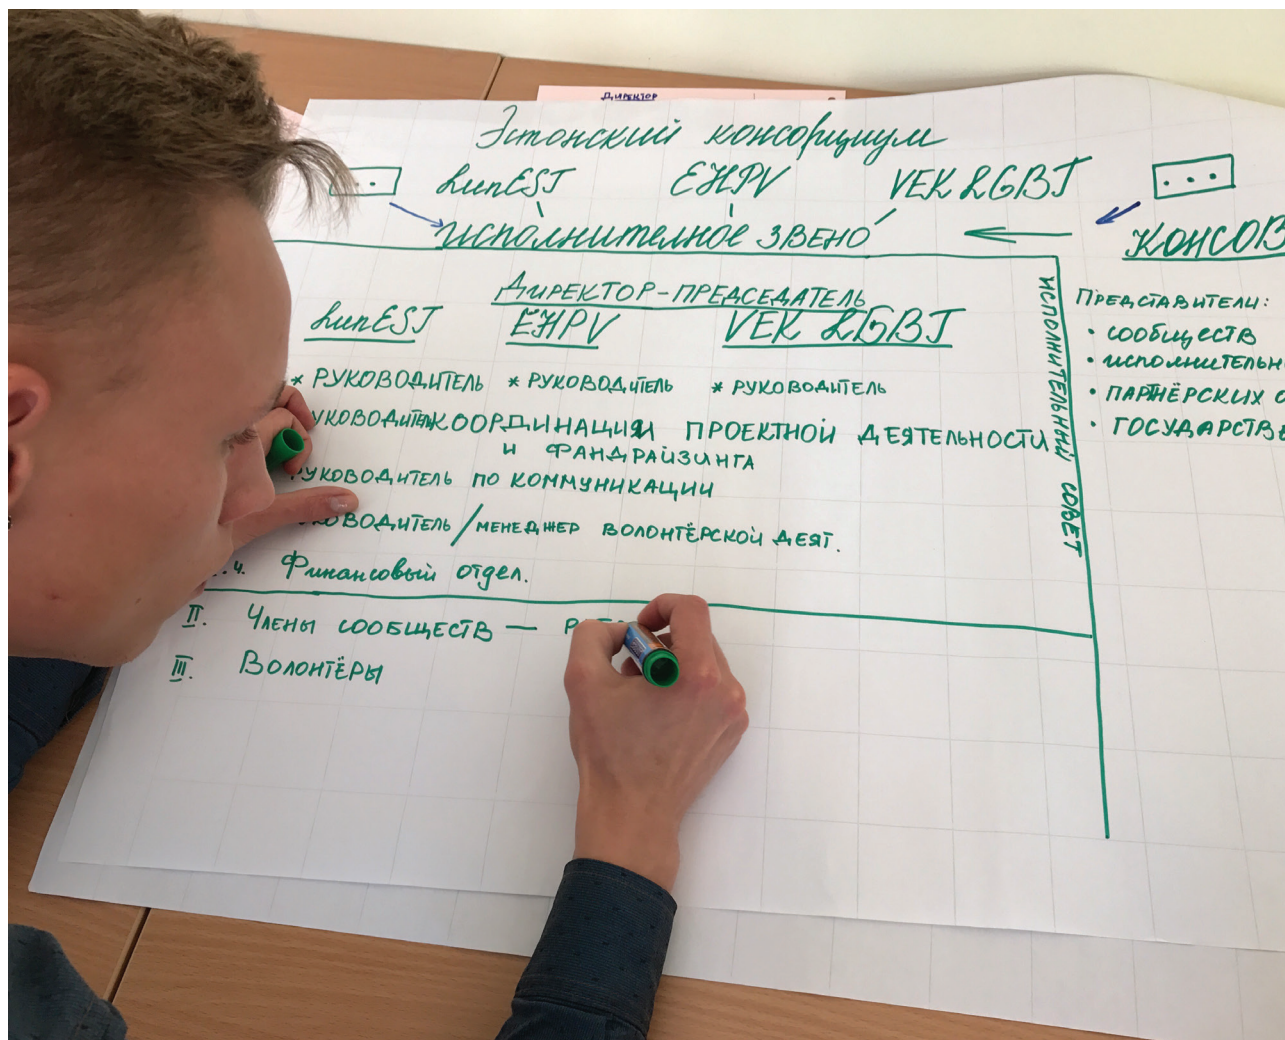 ДИРЕКТОР
Эстонский консорциум
... LunEST EHPV VEK LGBT ...
исполнителное ЗВЕНО
КОНСОВ
ДИРЕКТОР-ПРЕДСЕДАТЕЛЬ
LunEST EHPV VEK LGBT
* РУКОВОДИТЕЛЬ * РУКОВОДИТЕЛЬ * РУКОВОДИТЕЛЬ
КООРДИНАЦИИ ПРОЕКТНОЙ ДЕЯТЕЛЬНОСТИ
И ФАНДРАЙЗИНГА
РУКОВОДИТЕЛЬ ПО КОММУНИКАЦИИ
ОВОДИТЕЛЬ/МЕНЕДЖЕР ВОЛОНТЁРСКОЙ ДЕЯТ.
4. Финансовый отдел.
II. Члены сообществ —
III. Волонтёры
ИСПОЛНИТЕЛЬНЫЙ СОВЕТ
ПРЕДСТАВИТЕЛИ:
• сообществ
• исполнительн
• ПАРТНЁРСКИХ О
• ГОСУДАРСТВЕ